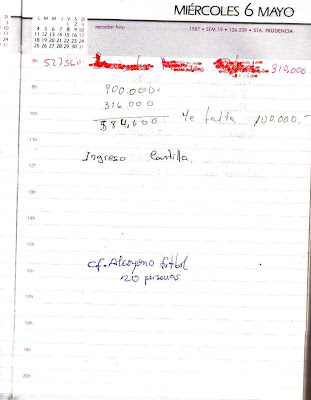 MIÉRCOLES 6 MAYO
L M M J V S D
1 2 3
4 5 6 7 8 9 10
11 12 13 14 15 16 17
18 19 20 21 22 23 24
25 26 27 28 29 30 31
recordar hoy:
1987 • SEM.19 • 126-239 • STA. PRUDENCIA
8h
527560
9h
900.000
10h
316.000
$84,000 Me falta 100.000.-
11h
12h
Ingreso Castilla
13h
15h
cf. Alcoyano futbol
16h
20 personas
17h
18h
19h
20h